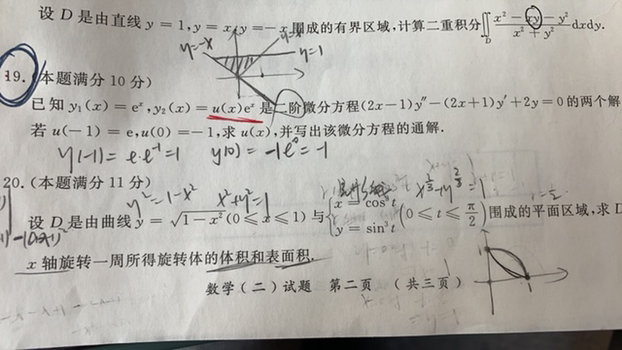 设 D 是由直线 y = 1, y = x, y = -x 围成的有界区域,计算二重积分∬_D (x² - xy - y²)/(x² + y²) dxdy.
y=-x y=x y=1
19. (本题满分 10 分)
已知 y₁(x) = eˣ, y₂(x) = u(x)eˣ 是二阶微分方程(2x-1)y″-(2x+1)y′+2y=0 的两个解
若 u(-1) = e, u(0) = -1, 求 u(x), 并写出该微分方程的通解.
y(-1) = e·e⁻¹=1 y(0) = -1e⁰ = -1
20. (本题满分 11 分)
y²=1-x² x²+y²=1 x^(2/3)+y^(2/3)=1
设 D 是由曲线 y = √(1-x²)(0 ≤ x ≤ 1) 与 {x = cos³t, y = sin³t (0 ≤ t ≤ π/2) 围成的平面区域, 求 D
x 轴旋转一周所得旋转体的体积和表面积.
数学(二)试题 第二页 (共三页)
1
1